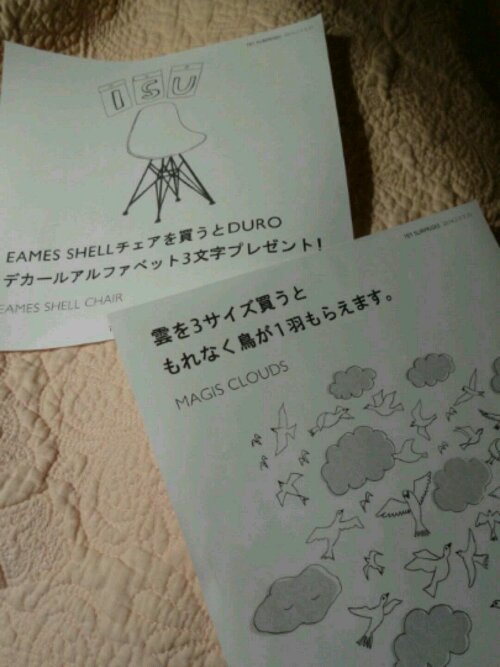 ISU
EAMES SHELLチェアを買うとDURO
デカールアルファベット3文字プレゼント!
EAMES SHELL CHAIR
雲を3サイズ買うと
もれなく鳥が1羽もらえます。
MAGIS CLOUDS